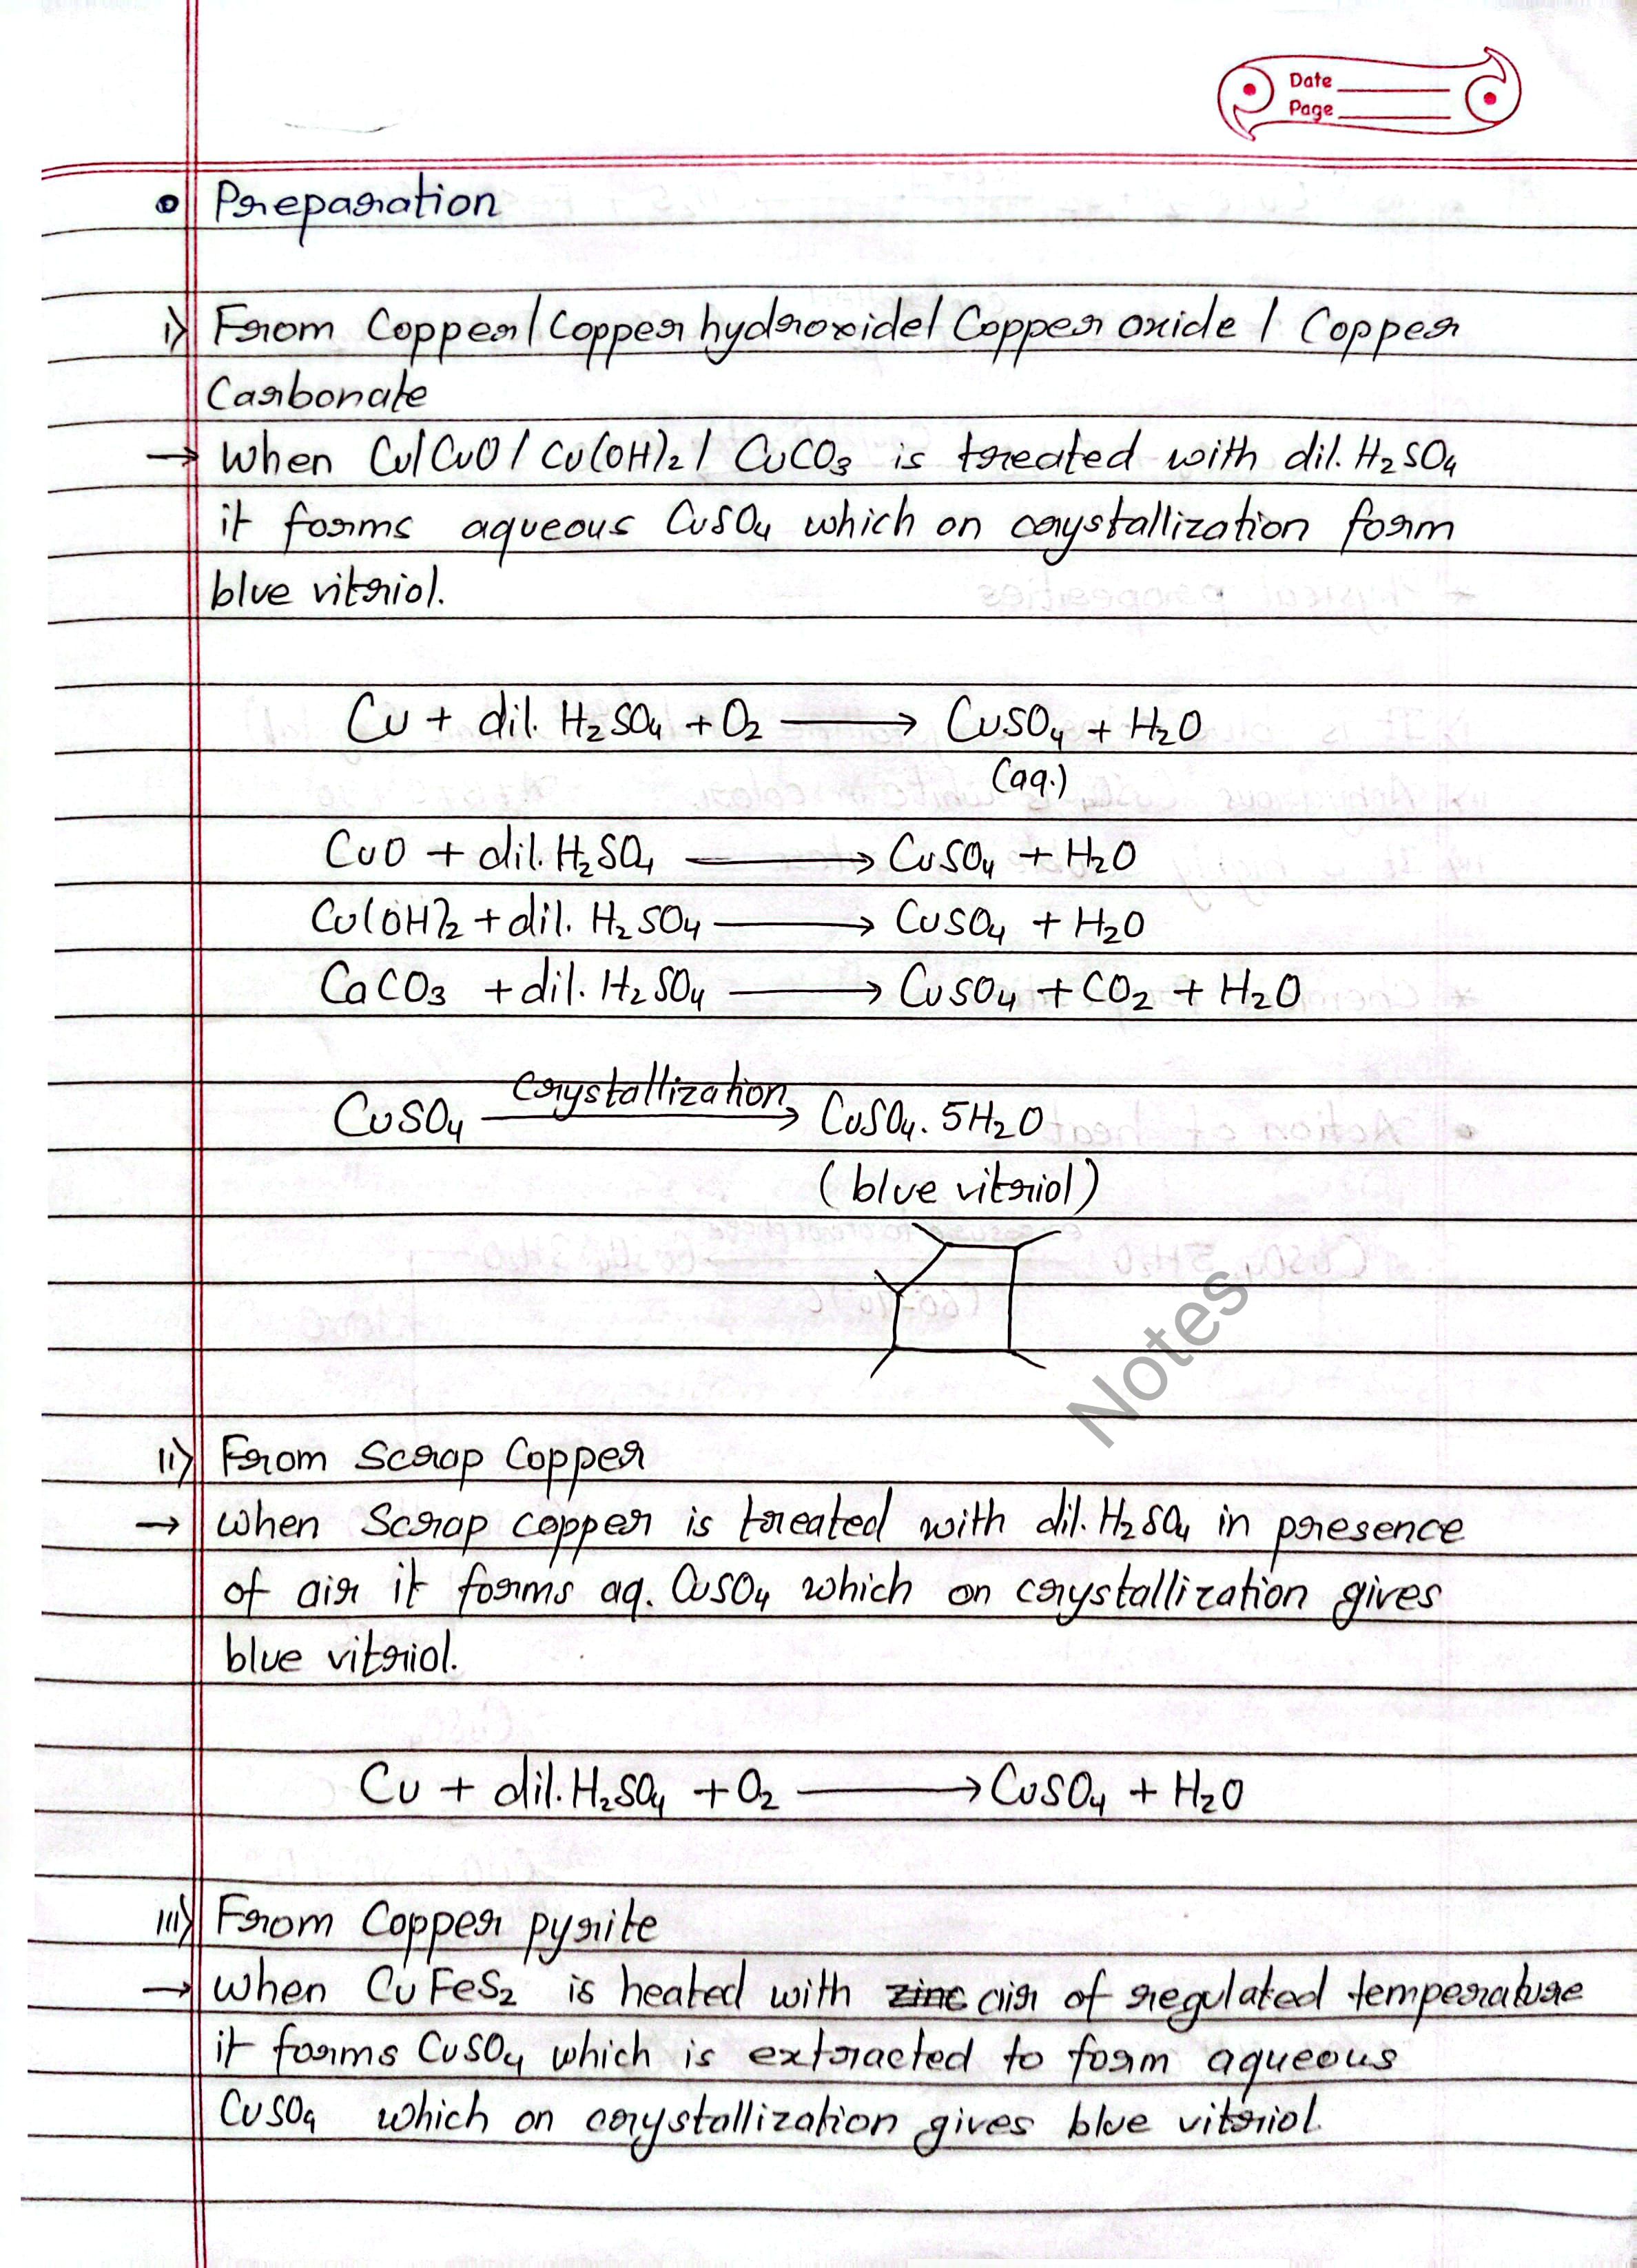 Date
Page
Preparation
i) From Copper/Copper hydroxide/Copper oxide / Copper
Carbonate
→ When Cu/CuO/Cu(OH)2/ CuCO3 is treated with dil. H2SO4
it forms aqueous CuSO4 which on crystallization form
blue vitriol.
Cu + dil. H2SO4 + O2 → CuSO4 + H2O
(aq.)
CuO + dil. H2SO4 → CuSO4 + H2O
Cu(OH)2 + dil. H2SO4 → CuSO4 + H2O
CaCO3 + dil. H2SO4 → CuSO4 + CO2 + H2O
crystallization
CuSO4 → CuSO4. 5H2O
(blue vitriol)
Notes
ii) From Scrap Copper
→ When Scrap copper is treated with dil. H2SO4 in presence
of air it forms aq. CuSO4 which on crystallization gives
blue vitriol.
Cu + dil. H2SO4 + O2 → CuSO4 + H2O
iii) From Copper pyrite
→ When CuFeS2 is heated with zinc air of regulated temperature
it forms CuSO4 which is extracted to form aqueous
CuSO4 which on crystallization gives blue vitriol.